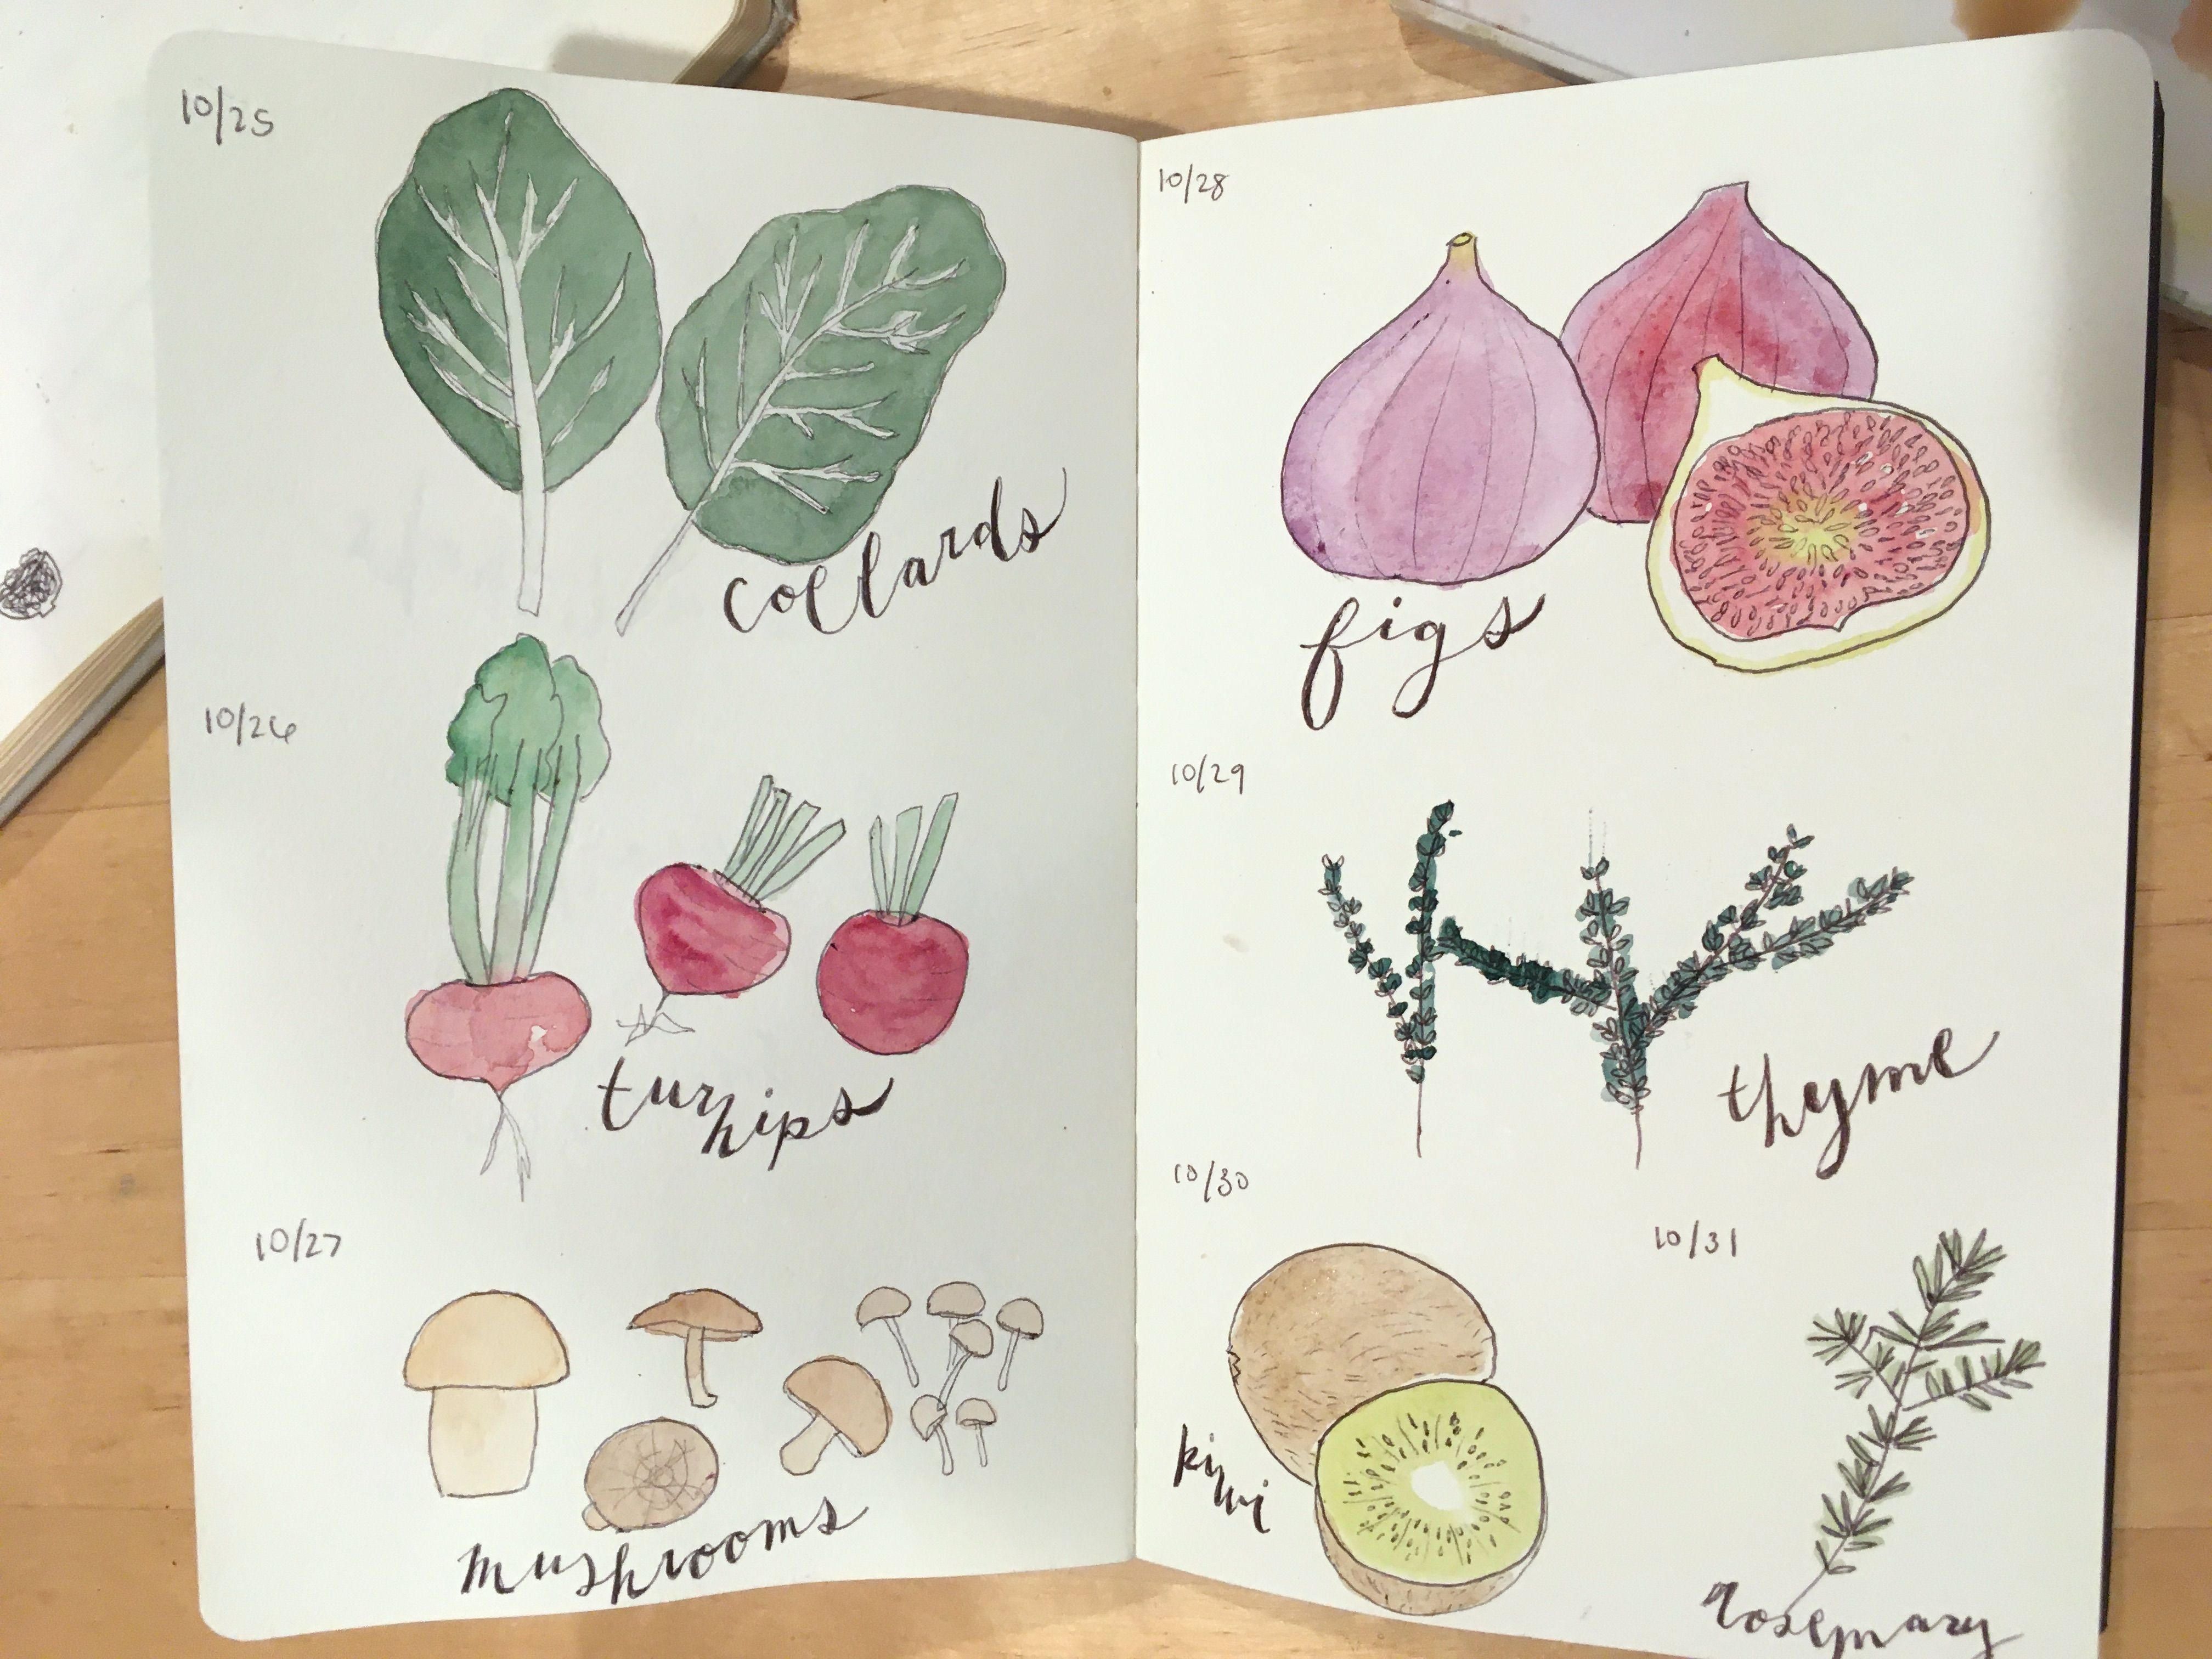 10/25
collards
10/26
turnips
10/27
mushrooms
10/28
figs
10/29
thyme
10/30
kiwi
10/31
rosemary